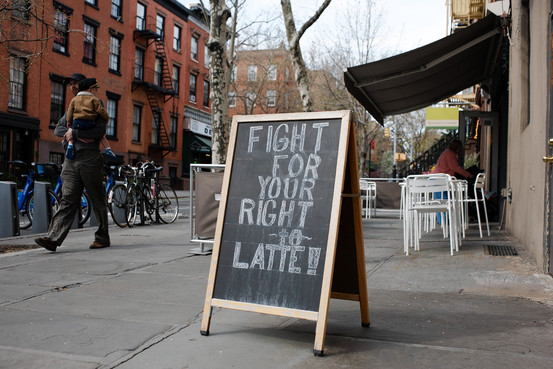 FIGHT
FOR
YOUR
RIGHT
~to~
LATTE!!